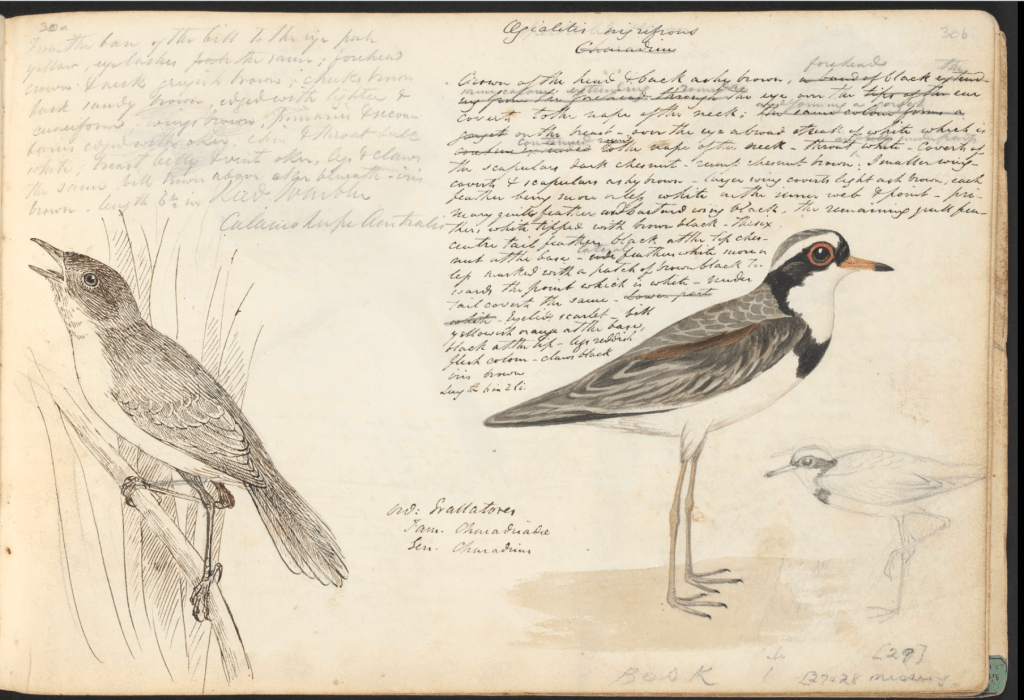 30a
From the base of the bill to the eye pale
yellow, eye lashes the same; forehead
crown & neck greyish brown; cheeks brown
back sandy brown, edged with lighter &
cuneiform - wings brown, primaries & secon-
daries edged with oker, chin & throat dull
white, breast belly & vent oker, legs & claws
the same, bill brown above oker beneath - iris
brown - length 6½ in Reed Warbler
Calamoherpe Australis
Ægialitis nigrifrons
Charadrius
30b
forehead
Crown of the head & back ashy brown, a band of black extend-
ing from the forehead through the eye over the tips of the ear
coverts to the nape of the neck; the same colour forms a
gorget on the breast - over the eye a broad streak of white which is
continued round to the nape of the neck - throat white - coverts of
the scapulars dark chesnut - rump chesnut brown. Smaller wing
coverts & scapulars ashy brown - larger wing coverts light ash brown, each
feather being more or less white on the inner web & point - pri-
mary quill feather and bastard wing black, the remaining quill fea-
ther, white tipped with brown black - the six
centre tail feathers black at the tip ches-
nut at the base - lateral feathers white more or
less marked with a patch of brown black to-
wards the point which is white - under
tail coverts the same - lower part
white - Eyelids scarlet - bill
yellowish orange at the base,
black at the tip - legs reddish
flesh colour - claws black
iris brown
Length 6 in 2 li.
Ord: Grallatores
Fam. Charadriadae
Gen. Charadrius
[29]
BOOK
[27 & 28 missing